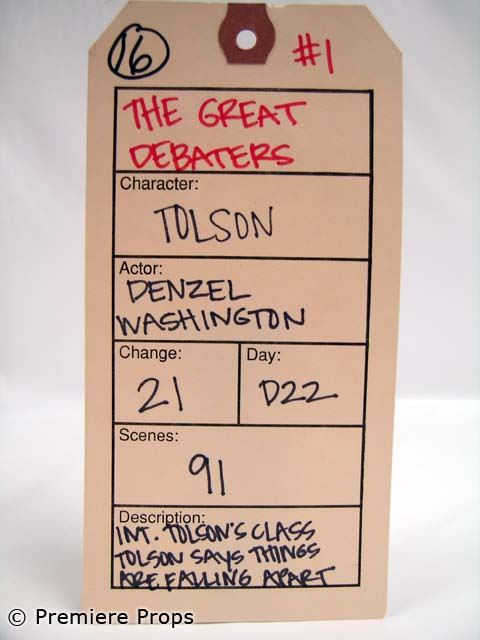 16
#1
THE GREAT
DEBATERS
Character:
TOLSON
Actor:
DENZEL
WASHINGTON
Change:
21
Day:
D22
Scenes:
91
Description:
INT. TOLSON'S CLASS
TOLSON SAYS THINGS
ARE FALLING APART
© Premiere Props